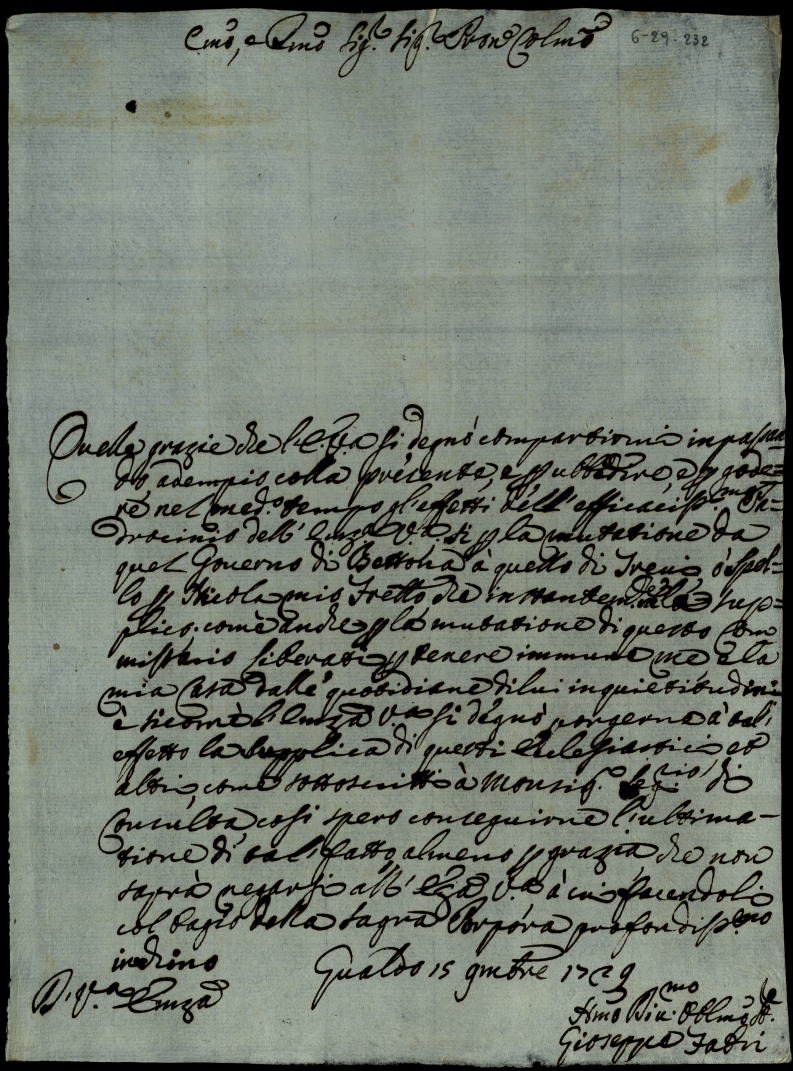 Emo, e Rmo Sig.r Sig.r Pron Colmo
6-29-232
Quelle grazie che l'E. V.a si degnò compartirmi in passan
do adempio colla presente, e p ubbidire, e p gode=
re nel med.o tempo gl'effetti dell'efficaciss.mo Pa=
trocinio dell' Emza V.a si p la mutatione da
quel Governo di Bettona à quello di Trevi ò Spel=
lo p Nicola mio Fretto che instantem.te la sup=
plico, come anche p la mutatione di questo Com
missario Liberati p tenere immune me e la
mia Casa dalle quotidiane di lui inquietitudini
è siccome l'Emza V.a si degnò porgerne à tal'
effetto la supplica di questi Eclesiastici et
altri come sottoscritti à Monsig.r Seg.rio di
Consulta così spero conseguirne l'ultima-
tione di tal fatto almeno p grazia che non
saprà negarsi all' Emza V.a à cui facendoli
col bagio della Sagra Porpora profondiss.mo
inchino
Gualdo 15 9mbre 1729
D. V.a Emza
Hmo Div.mo Oblmo Se.
Gioseppe Fabri